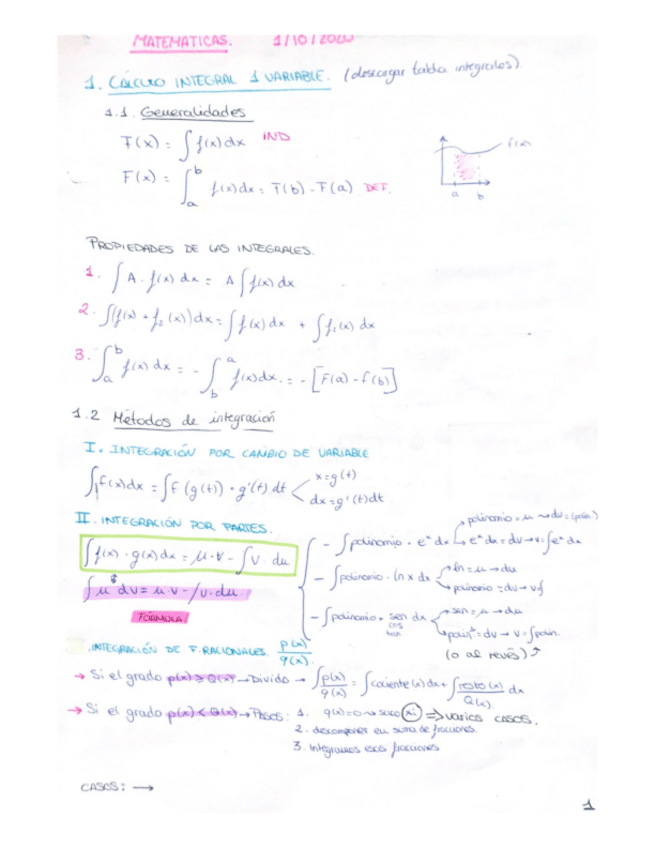 MATEMATICAS. 1/10/2020
1. CÁLCULO INTEGRAL 1 VARIABLE. (descargar tabla integrales).
1.1. Generalidades
F(x) = ∫ f(x) dx IND
F(x) = ∫_a^b f(x) dx = F(b) - F(a) DEF.
f(x)
a b
PROPIEDADES DE LAS INTEGRALES.
1. ∫ A · f(x) dx = A ∫ f(x) dx
2. ∫(f(x) + f₂(x)) dx = ∫ f(x) dx + ∫ f₂(x) dx
3. ∫_a^b f(x) dx = - ∫_b^a f(x) dx. = - [F(a) - f(b)]
1.2 Métodos de integración
I. INTEGRACIÓN POR CAMBIO DE VARIABLE
∫ f(x) dx = ∫ F (g(t)) · g'(t) dt
x = g(t)
dx = g'(t) dt
II. INTEGRACIÓN POR PARTES.
∫ f(x) · g(x) dx = μ · v - ∫ v · du
∫ μ dv = μ · v - ∫ v · du
FÓRMULA
polinomio = μ → du = (polin.)
- ∫ polinomio · eˣ dx → eˣ dx = dv → v = ∫ eˣ dx
- ∫ polinomio · ln x dx
ln = μ → du
polinomio = dv → v = ∫
- ∫ polinomio · sen dx
cos
tan
sen = μ → du
polin = dv → v = ∫ polin.
(o al revés) ↑
INTEGRACIÓN DE F. RACIONALES. p(x)/q(x).
→ Si el grado p(x) ≥ Q(x) → Divido → ∫ p(x)/q(x) = ∫ cociente (x) dx + ∫ resto (x)/Q(x) dx
→ Si el grado p(x) < Q(x) → Pasos: 1. q(x) = 0 → saco xi ⇒ varios casos.
2. descomponer en suma de fracciones.
3. Integramos esas fracciones
CASOS: →
1